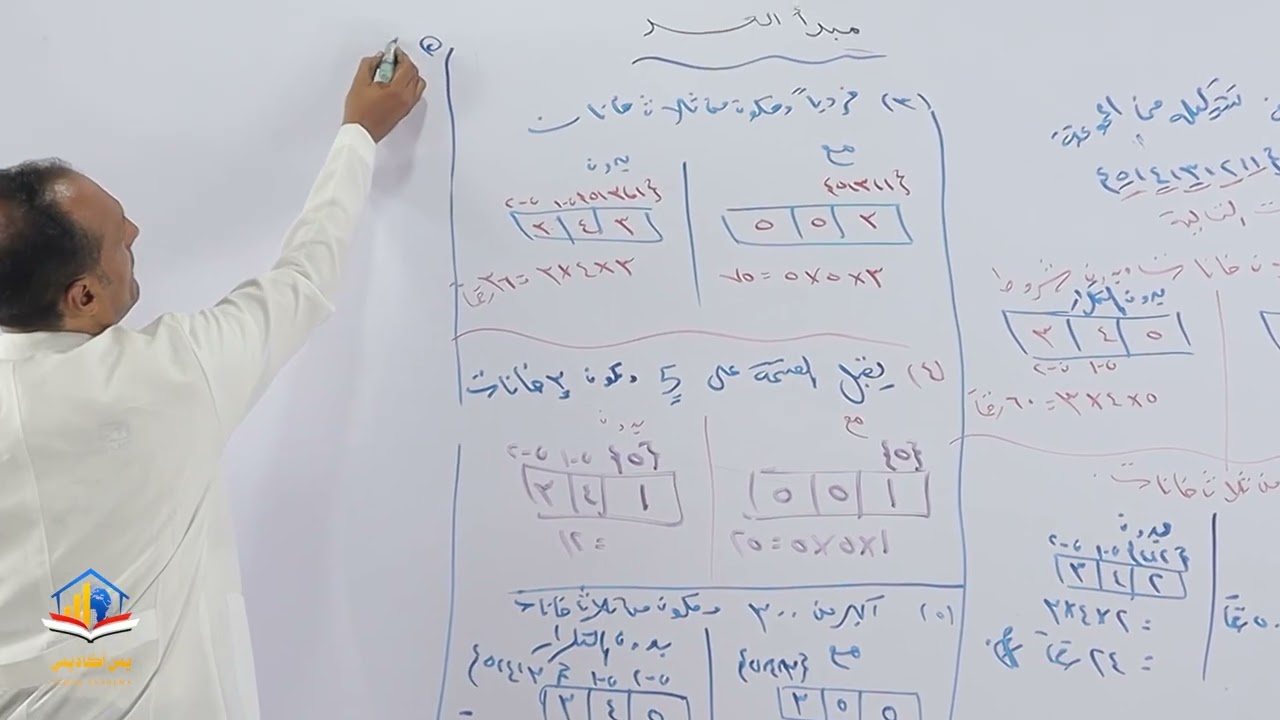 مبدأ العد
تشكيله من المجموعة
{٥،٤،٣،٢،١}
ت التالية
شروط
بدون التكرار
٥ ٤ ٣
ن-١ ن-٢
٥×٤×٣=٦٠ رقماً
من ثلاث خانات
بدون
ن-١ ن-٢
٢ ٤ ٣
=٢×٤×٣
=٢٤ رقماً
(٣) فردياً ومكون من ثلاث خانات
مع
{٥،٣،١}
٣ ٥ ٥
٣×٥×٥=٧٥
بدون
{٥،٣،١} ن-١ ن-٢
٣ ٤ ٣
٣×٤×٣=٣٦ رقماً
(٤) يقبل القسمة على 5 ومكون من ٣ خانات
مع
{٥}
١ ٥ ٥
١×٥×٥=٢٥
بدون
{٥} ن-١ ن-٢
١ ٤ ٣
=١٢
(٥) أكبر من ٣٠٠ ومكون من ثلاث خانات
مع
{٥،٤،٣}
٥ ٥ ٣
بدون التكرار
ن-٢ ن-١ {٥،٤،٣}
٥ ٤ ٣
يمن أكاديمي